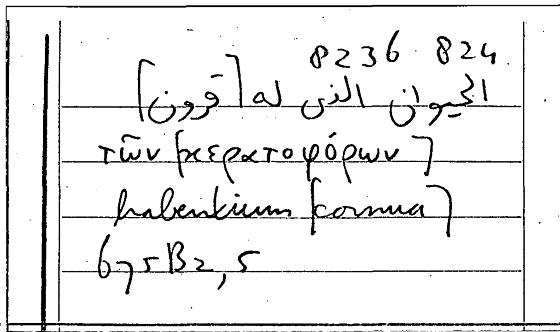 8236 824
الحيوان الذى له [قرون]
τῶν [κερατοφόρων]
habentium [cornua]
675B2, 5